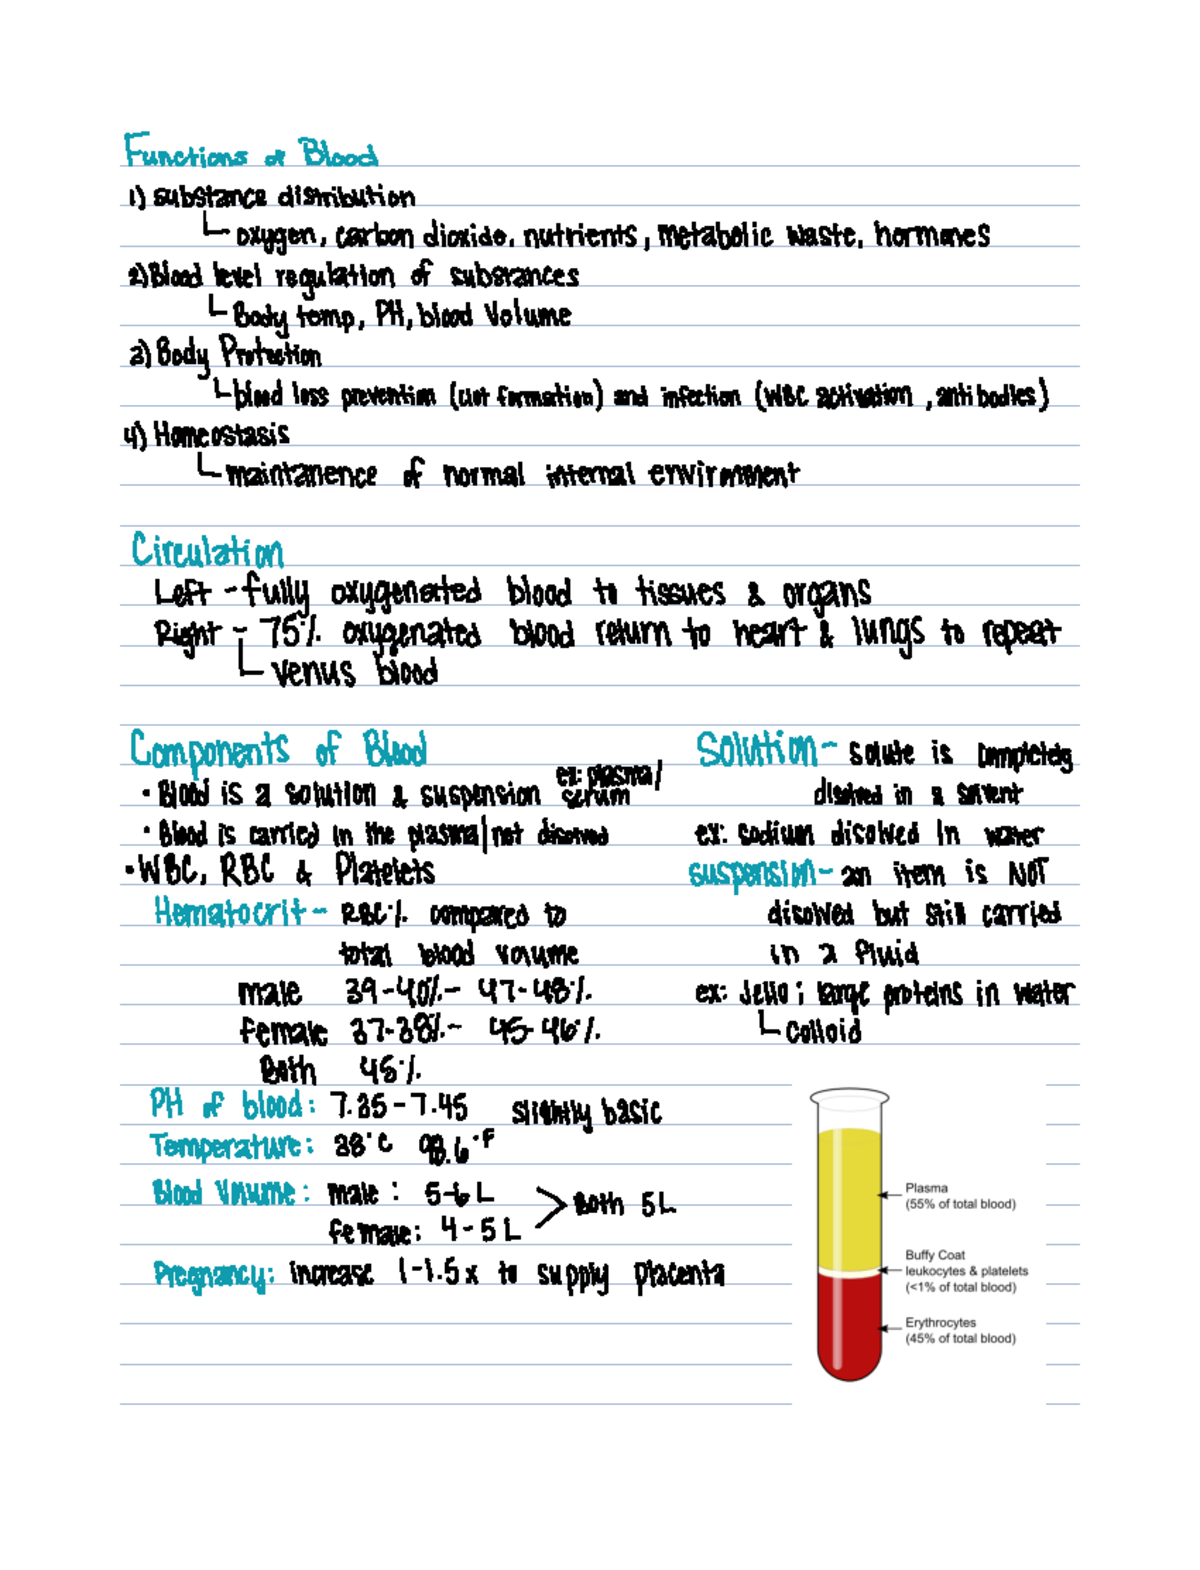 Functions of Blood
1) substance distribution
oxygen, carbon dioxide, nutrients, metabolic waste, hormones
2) Blood level regulation of substances
Body temp, PH, blood Volume
3) Body Protection
blood loss prevention (clot formation) and infection (WBC activation, antibodies)
4) Homeostasis
maintanence of normal internal environment
Circulation
Left - fully oxygenated blood to tissues & organs
Right - 75% oxygenated blood return to heart & lungs to repeat
venus blood
Components of Blood
• Blood is a solution & suspension ex: plasma/serum
• Blood is carried in the plasma/not disolved
• WBC, RBC & Platelets
Hematocrit - RBC% compared to
total blood volume
male 39-40% - 47-48%
female 37-38% - 45-46%
Both 45%
PH of blood: 7.35-7.45 slightly basic
Temperature: 38°C 98.6°F
Blood Volume: male: 5-6 L
female: 4-5 L
Both 5L
Pregnancy: increase 1-1.5x to supply placenta
Solution - solute is completely
disolved in a solvent
ex: sodium disolved in water
suspension - an item is NOT
disolved but still carried
in a fluid
ex: Jello; large proteins in water
Colloid
Plasma
(55% of total blood)
Buffy Coat
leukocytes & platelets
(<1% of total blood)
Erythrocytes
(45% of total blood)